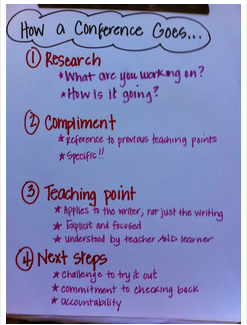 How a Conference Goes...
① Research
* What are you working on?
* How is it going?
② Compliment
* Reference to previous teaching points
* Specific!!
③ Teaching point
* Applies to the writer, not just the writing
* Explicit and focused
* understood by teacher AND learner
④ Next steps
* challenge to try it out
* commitment to checking back
* accountability